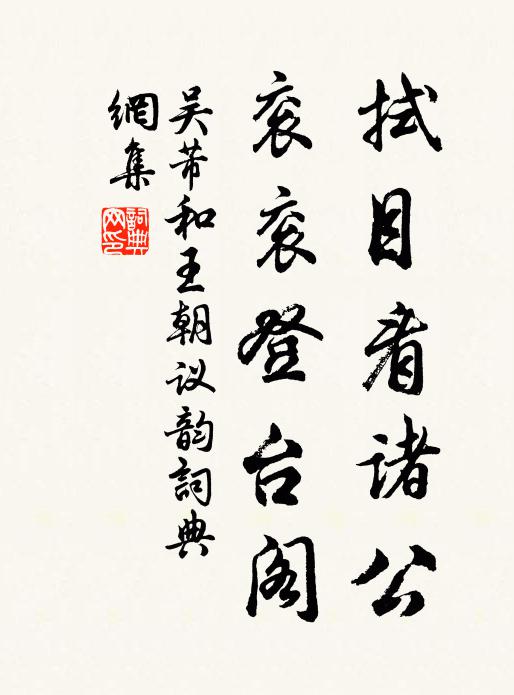 拭目看诸公
衮衮登台阁
吴芾和王朝议韵詞典
網集
詞典
网印